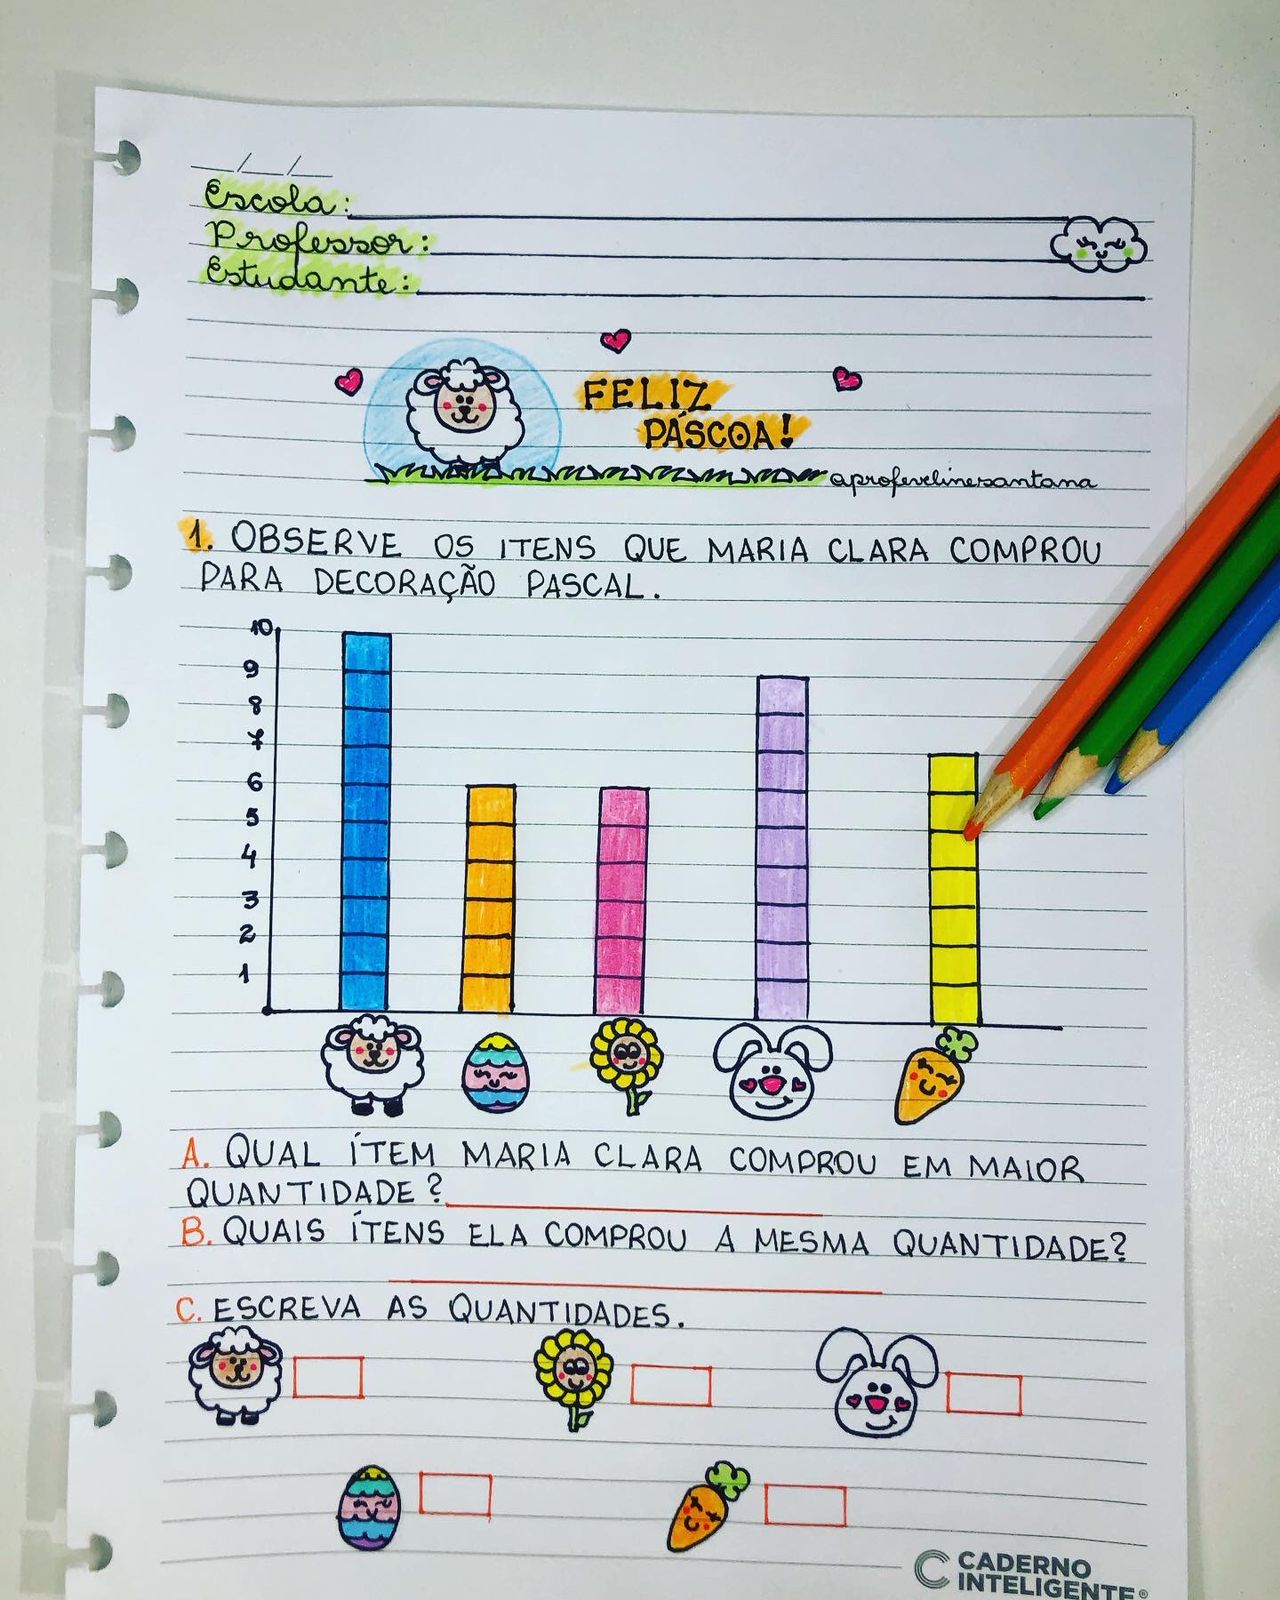 __/__/__
Escola:
Professor:
Estudante:
FELIZ
PÁSCOA!
@profevelinesantana
1. OBSERVE OS ITENS QUE MARIA CLARA COMPROU
PARA DECORAÇÃO PASCAL.
10
9
8
7
6
5
4
3
2
1
A. QUAL ÍTEM MARIA CLARA COMPROU EM MAIOR
QUANTIDADE?
B. QUAIS ÍTENS ELA COMPROU A MESMA QUANTIDADE?
C. ESCREVA AS QUANTIDADES.
CADERNO
INTELIGENTE®